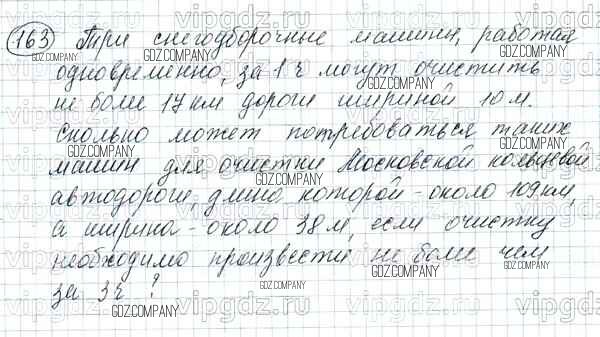 163 Три снегоуборочные машины, работая
одновременно, за 1 ч могут очистить
не более 17 км дороги шириной 10 м.
Сколько может потребоваться таких
машин для очистки Московской кольцевой
автодороги, длина которой - около 109 км,
а ширина - около 38 м, если очистку
необходимо произвести не более чем
за 3 ч ?